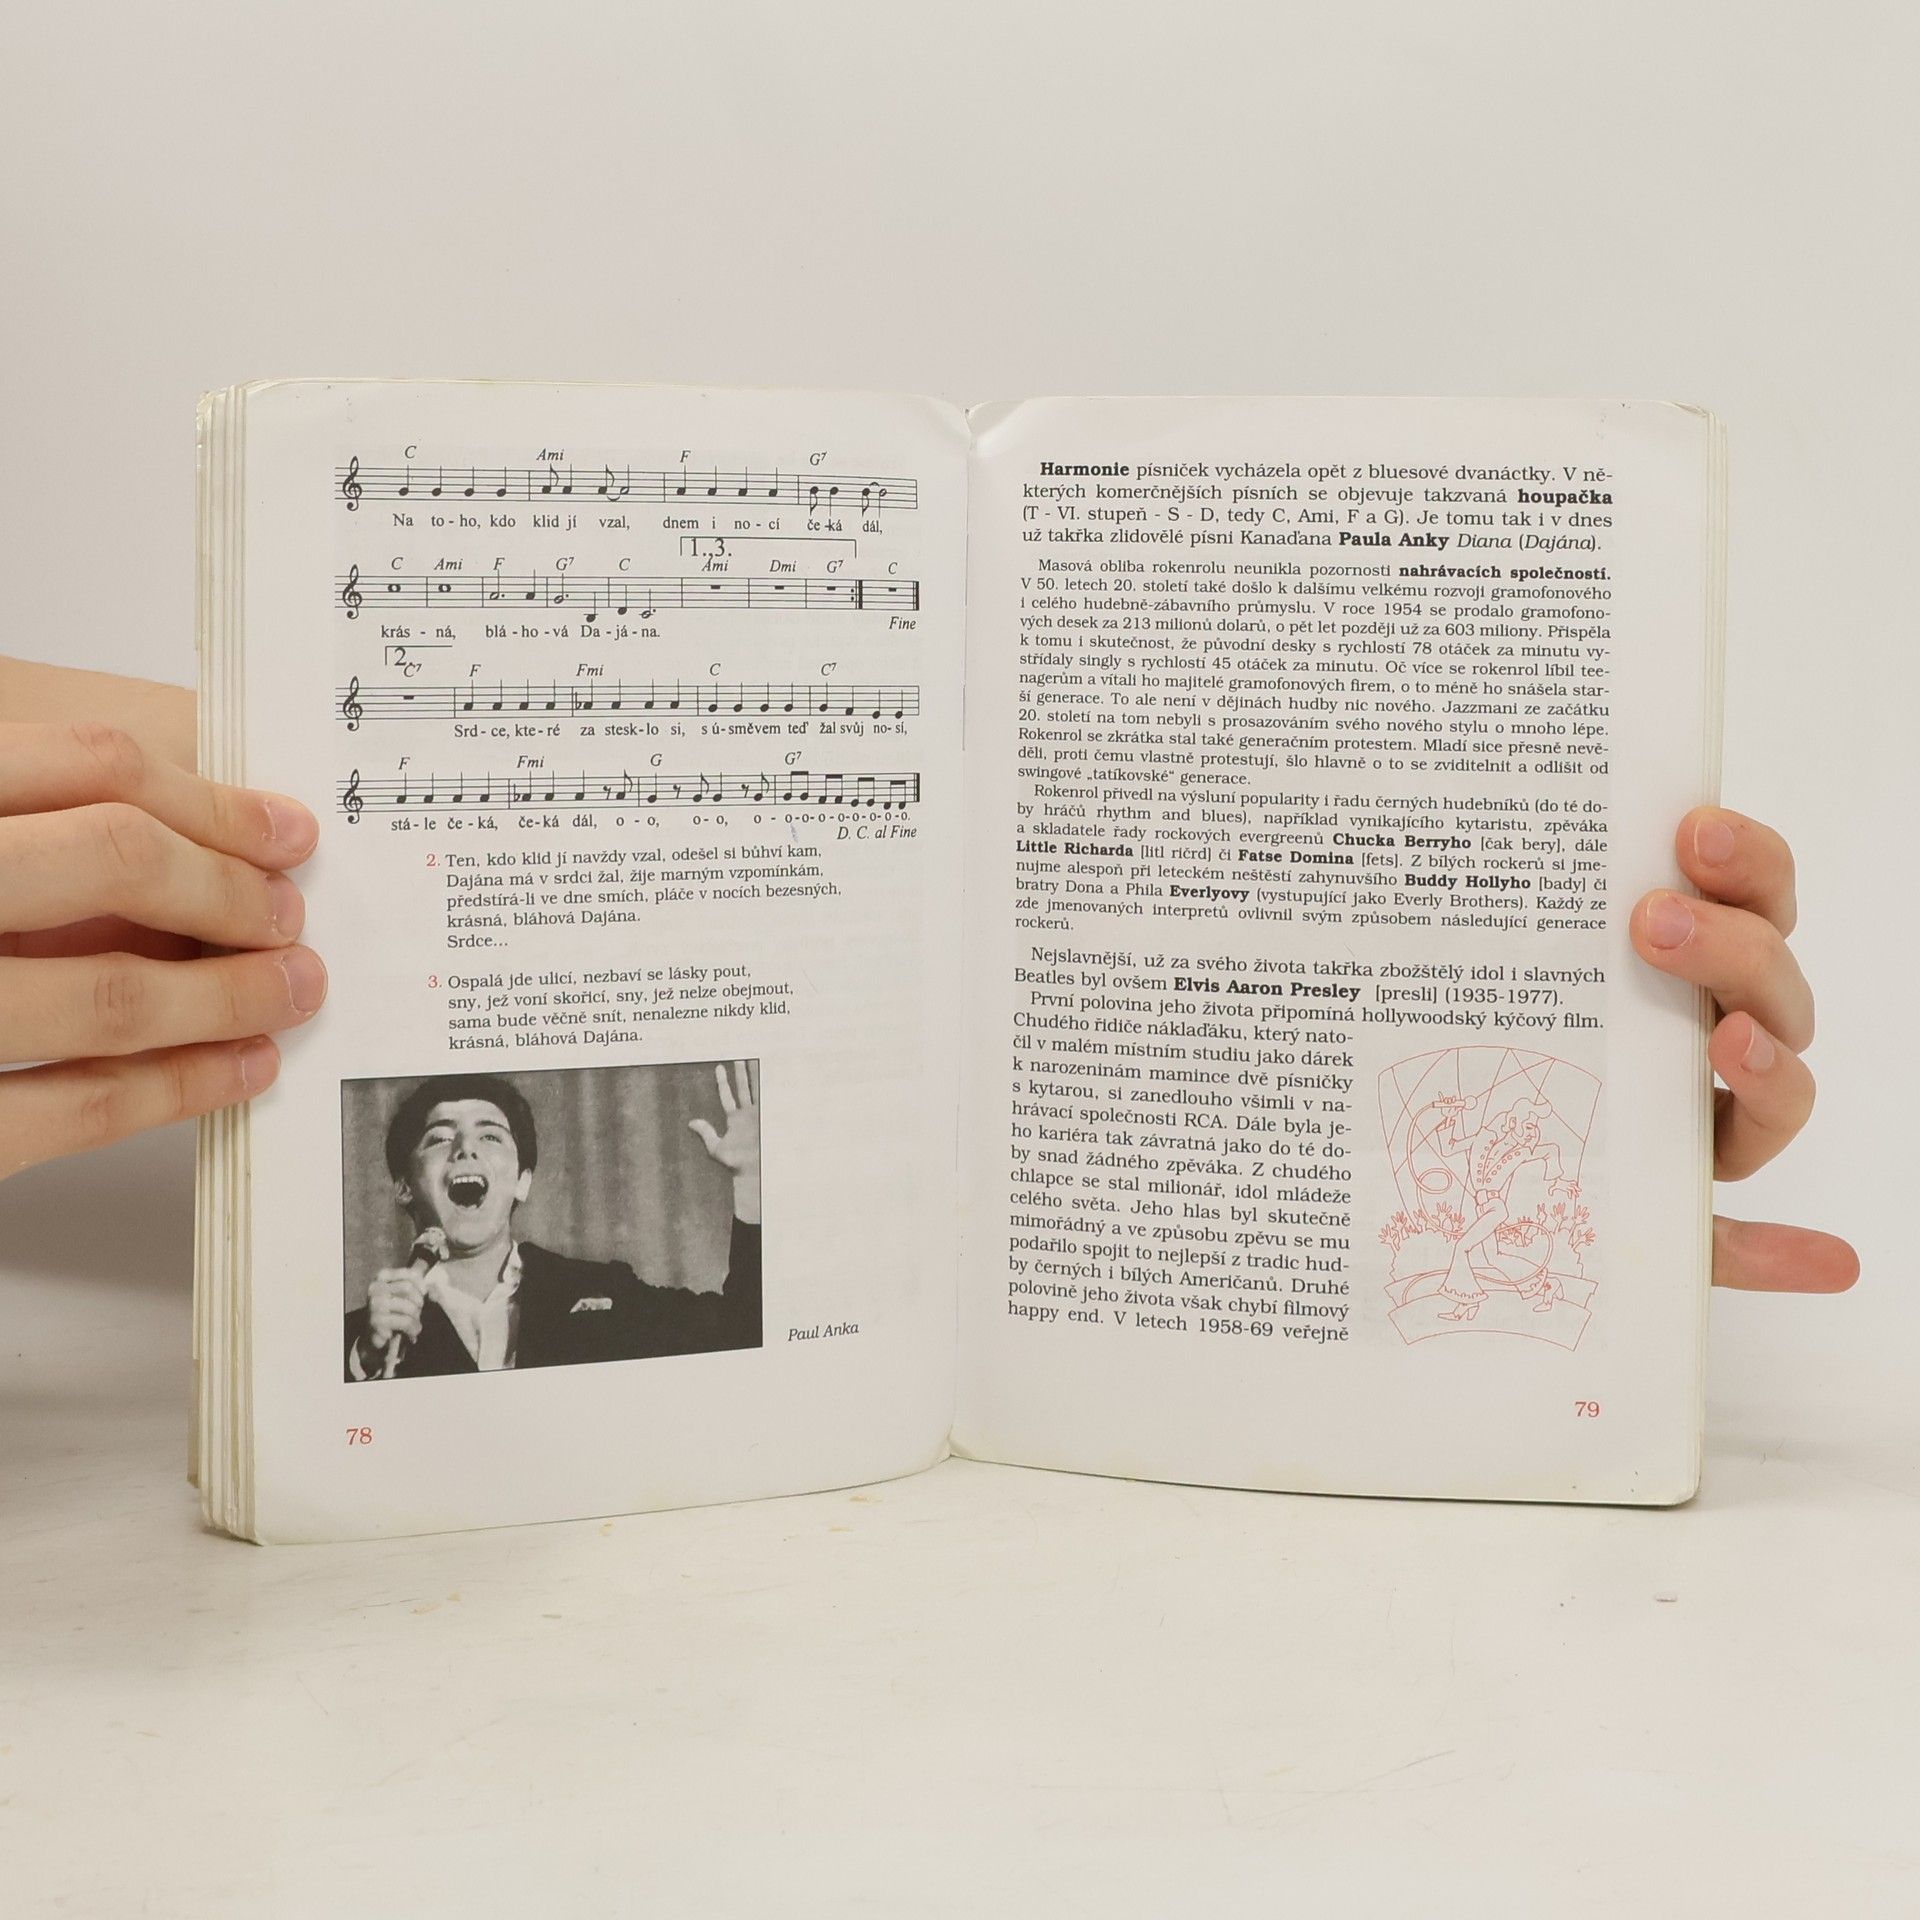 C Ami F G7
Na to - ho, kdo klid jí vzal, dnem i no - cí če - ká dál,
1.,3.
C Ami F G7 C Ami Dmi G7 C
Fine
krás - ná, blá - ho - vá Da - já - na.
2.
C7 F Fmi C C7
Srd - ce, kte - ré za stesk - lo si, s ú - směvem teď žal svůj no - sí,
F Fmi G G7
stá - le če - ká, če - ká dál, o - o, o - o, o - o-o-o-o-o-o-o.
D. C. al Fine
2. Ten, kdo klid jí navždy vzal, odešel si bůhví kam,
Dajána má v srdci žal, žije marným vzpomínkám,
předstírá-li ve dne smích, pláče v nocích bezesných,
krásná, bláhová Dajána.
Srdce...
3. Ospalá jde ulicí, nezbaví se lásky pout,
sny, jež voní skořicí, sny, jež nelze obejmout,
sama bude věčně snít, nenalezne nikdy klid,
krásná, bláhová Dajána.
Paul Anka
78
Harmonie písniček vycházela opět z bluesové dvanáctky. V ně-
kterých komerčnějších písních se objevuje takzvaná houpačka
(T - VI. stupeň - S - D, tedy C, Ami, F a G). Je tomu tak i v dnes
už takřka zlidovělé písni Kanaďana Paula Anky Diana (Dajána).
Masová obliba rokenrolu neunikla pozornosti nahrávacích společností.
V 50. letech 20. století také došlo k dalšímu velkému rozvoji gramofonového
i celého hudebně-zábavního průmyslu. V roce 1954 se prodalo gramofono-
vých desek za 213 milionů dolarů, o pět let později už za 603 miliony. Přispěla
k tomu i skutečnost, že původní desky s rychlostí 78 otáček za minutu vy-
střídaly singly s rychlostí 45 otáček za minutu. Oč více se rokenrol líbil tee-
nagerům a vítali ho majitelé gramofonových firem, o to méně ho snášela star-
ší generace. To ale není v dějinách hudby nic nového. Jazzmani ze začátku
20. století na tom nebyli s prosazováním svého nového stylu o mnoho lépe.
Rokenrol se zkrátka stal také generačním protestem. Mladí sice přesně nevě-
děli, proti čemu vlastně protestují, šlo hlavně o to se zviditelnit a odlišit od
swingové „tatíkovské“ generace.
Rokenrol přivedl na výsluní popularity i řadu černých hudebníků (do té do-
by hráčů rhythm and blues), například vynikajícího kytaristu, zpěváka
a skladatele řady rockových evergreenů Chucka Berryho [čak bery], dále
Little Richarda [litl ričrd] či Fatse Domina [fets]. Z bílých rockerů si jme-
nujme alespoň při leteckém neštěstí zahynuvšího Buddy Hollyho [bady] či
bratry Dona a Phila Everlyovy (vystupující jako Everly Brothers). Každý ze
zde jmenovaných interpretů ovlivnil svým způsobem následující generace
rockerů.
Nejslavnější, už za svého života takřka zbožštělý idol i slavných
Beatles byl ovšem Elvis Aaron Presley [presli] (1935-1977).
První polovina jeho života připomíná hollywoodský kýčový film.
Chudého řidiče náklaďáku, který nato-
čil v malém místním studiu jako dárek
k narozeninám mamince dvě písničky
s kytarou, si zanedlouho všimli v na-
hrávací společnosti RCA. Dále byla je-
ho kariéra tak závratná jako do té do-
by snad žádného zpěváka. Z chudého
chlapce se stal milionář, idol mládeže
celého světa. Jeho hlas byl skutečně
mimořádný a ve způsobu zpěvu se mu
podařilo spojit to nejlepší z tradic hud-
by černých i bílých Američanů. Druhé
polovině jeho života však chybí filmový
happy end. V letech 1958-69 veřejně
79